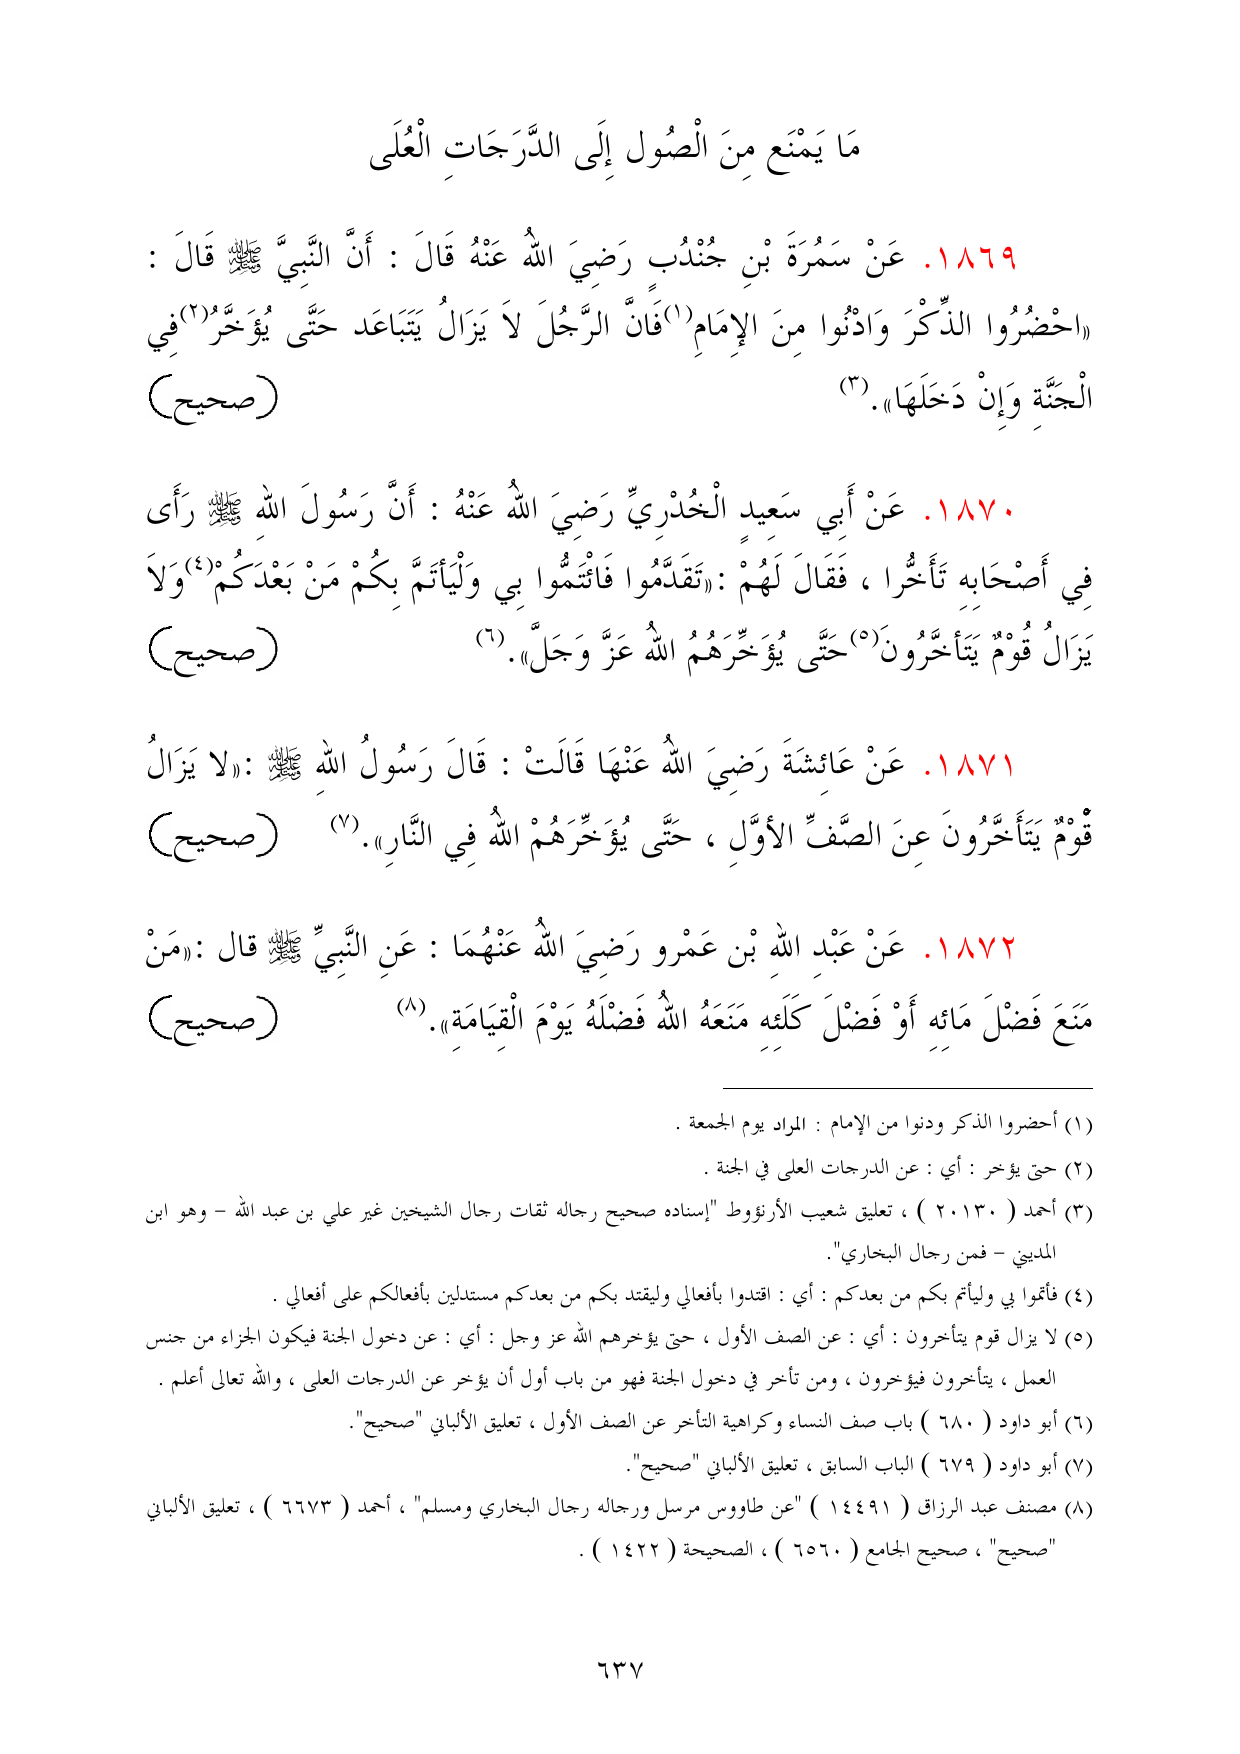 مَا يَمْنَع مِنَ الْصُول إِلَى الدَّرَجَاتِ الْعُلَى
١٨٦٩. عَنْ سَمُرَةَ بْنِ جُنْدُبٍ رَضِيَ اللهُ عَنْهُ قَالَ : أَنَّ النَّبِيَّ ﷺ قَالَ :
«احْضُرُوا الذِّكْرَ وَادْنُوا مِنَ الإِمَامِ(١)فَانَّ الرَّجُلَ لاَ يَزَالُ يَتَبَاعَد حَتَّى يُؤَخَّرُ(٢)فِي
الْجَنَّةِ وَإِنْ دَخَلَهَا».(٣) (صحيح)
١٨٧٠. عَنْ أَبِي سَعِيدٍ الْخُدْرِيِّ رَضِيَ اللهُ عَنْهُ : أَنَّ رَسُولَ اللهِ ﷺ رَأَى
فِي أَصْحَابِهِ تَأَخُّرا ، فَقَالَ لَهُمْ :«تَقَدَّمُوا فَائْتَمُّوا بِي وَلْيَأتَمَّ بِكُمْ مَنْ بَعْدَكُمْ(٤)وَلاَ
يَزَالُ قُوْمٌ يَتَأخَّرُونَ(٥)حَتَّى يُؤَخِّرَهُمُ اللهُ عَزَّ وَجَلَّ».(٦) (صحيح)
١٨٧١. عَنْ عَائِشَةَ رَضِيَ اللهُ عَنْهَا قَالَتْ : قَالَ رَسُولُ اللهِ ﷺ :«لا يَزَالُ
قُوْمٌ يَتَأَخَّرُونَ عِنَ الصَّفِّ الأوَّلِ ، حَتَّى يُؤَخِّرَهُمْ اللهُ فِي النَّارِ».(٧) (صحيح)
١٨٧٢. عَنْ عَبْدِ اللهِ بْن عَمْرو رَضِيَ اللهُ عَنْهُمَا : عَنِ النَّبِيِّ ﷺ قال :«مَنْ
مَنَعَ فَضْلَ مَائِهِ أَوْ فَضْلَ كَلَئِهِ مَنَعَهُ اللهُ فَضْلَهُ يَوْمَ الْقِيَامَةِ».(٨) (صحيح)
(١) أحضروا الذكر ودنوا من الإمام : المراد يوم الجمعة .
(٢) حتى يؤخر : أي : عن الدرجات العلى في الجنة .
(٣) أحمد ( ٢٠١٣٠ ) ، تعليق شعيب الأرنؤوط "إسناده صحيح رجاله ثقات رجال الشيخين غير علي بن عبد الله – وهو ابن
المديني – فمن رجال البخاري".
(٤) فأتموا بي وليأتم بكم من بعدكم : أي : اقتدوا بأفعالي وليقتد بكم من بعدكم مستدلين بأفعالكم على أفعالي .
(٥) لا يزال قوم يتأخرون : أي : عن الصف الأول ، حتى يؤخرهم الله عز وجل : أي : عن دخول الجنة فيكون الجزاء من جنس
العمل ، يتأخرون فيؤخرون ، ومن تأخر في دخول الجنة فهو من باب أول أن يؤخر عن الدرجات العلى ، والله تعالى أعلم .
(٦) أبو داود ( ٦٨٠ ) باب صف النساء وكراهية التأخر عن الصف الأول ، تعليق الألباني "صحيح".
(٧) أبو داود ( ٦٧٩ ) الباب السابق ، تعليق الألباني "صحيح".
(٨) مصنف عبد الرزاق ( ١٤٤٩١ ) "عن طاووس مرسل ورجاله رجال البخاري ومسلم" ، أحمد ( ٦٦٧٣ ) ، تعليق الألباني
"صحيح" ، صحيح الجامع ( ٦٥٦٠ ) ، الصحيحة ( ١٤٢٢ ) .
٦٣٧